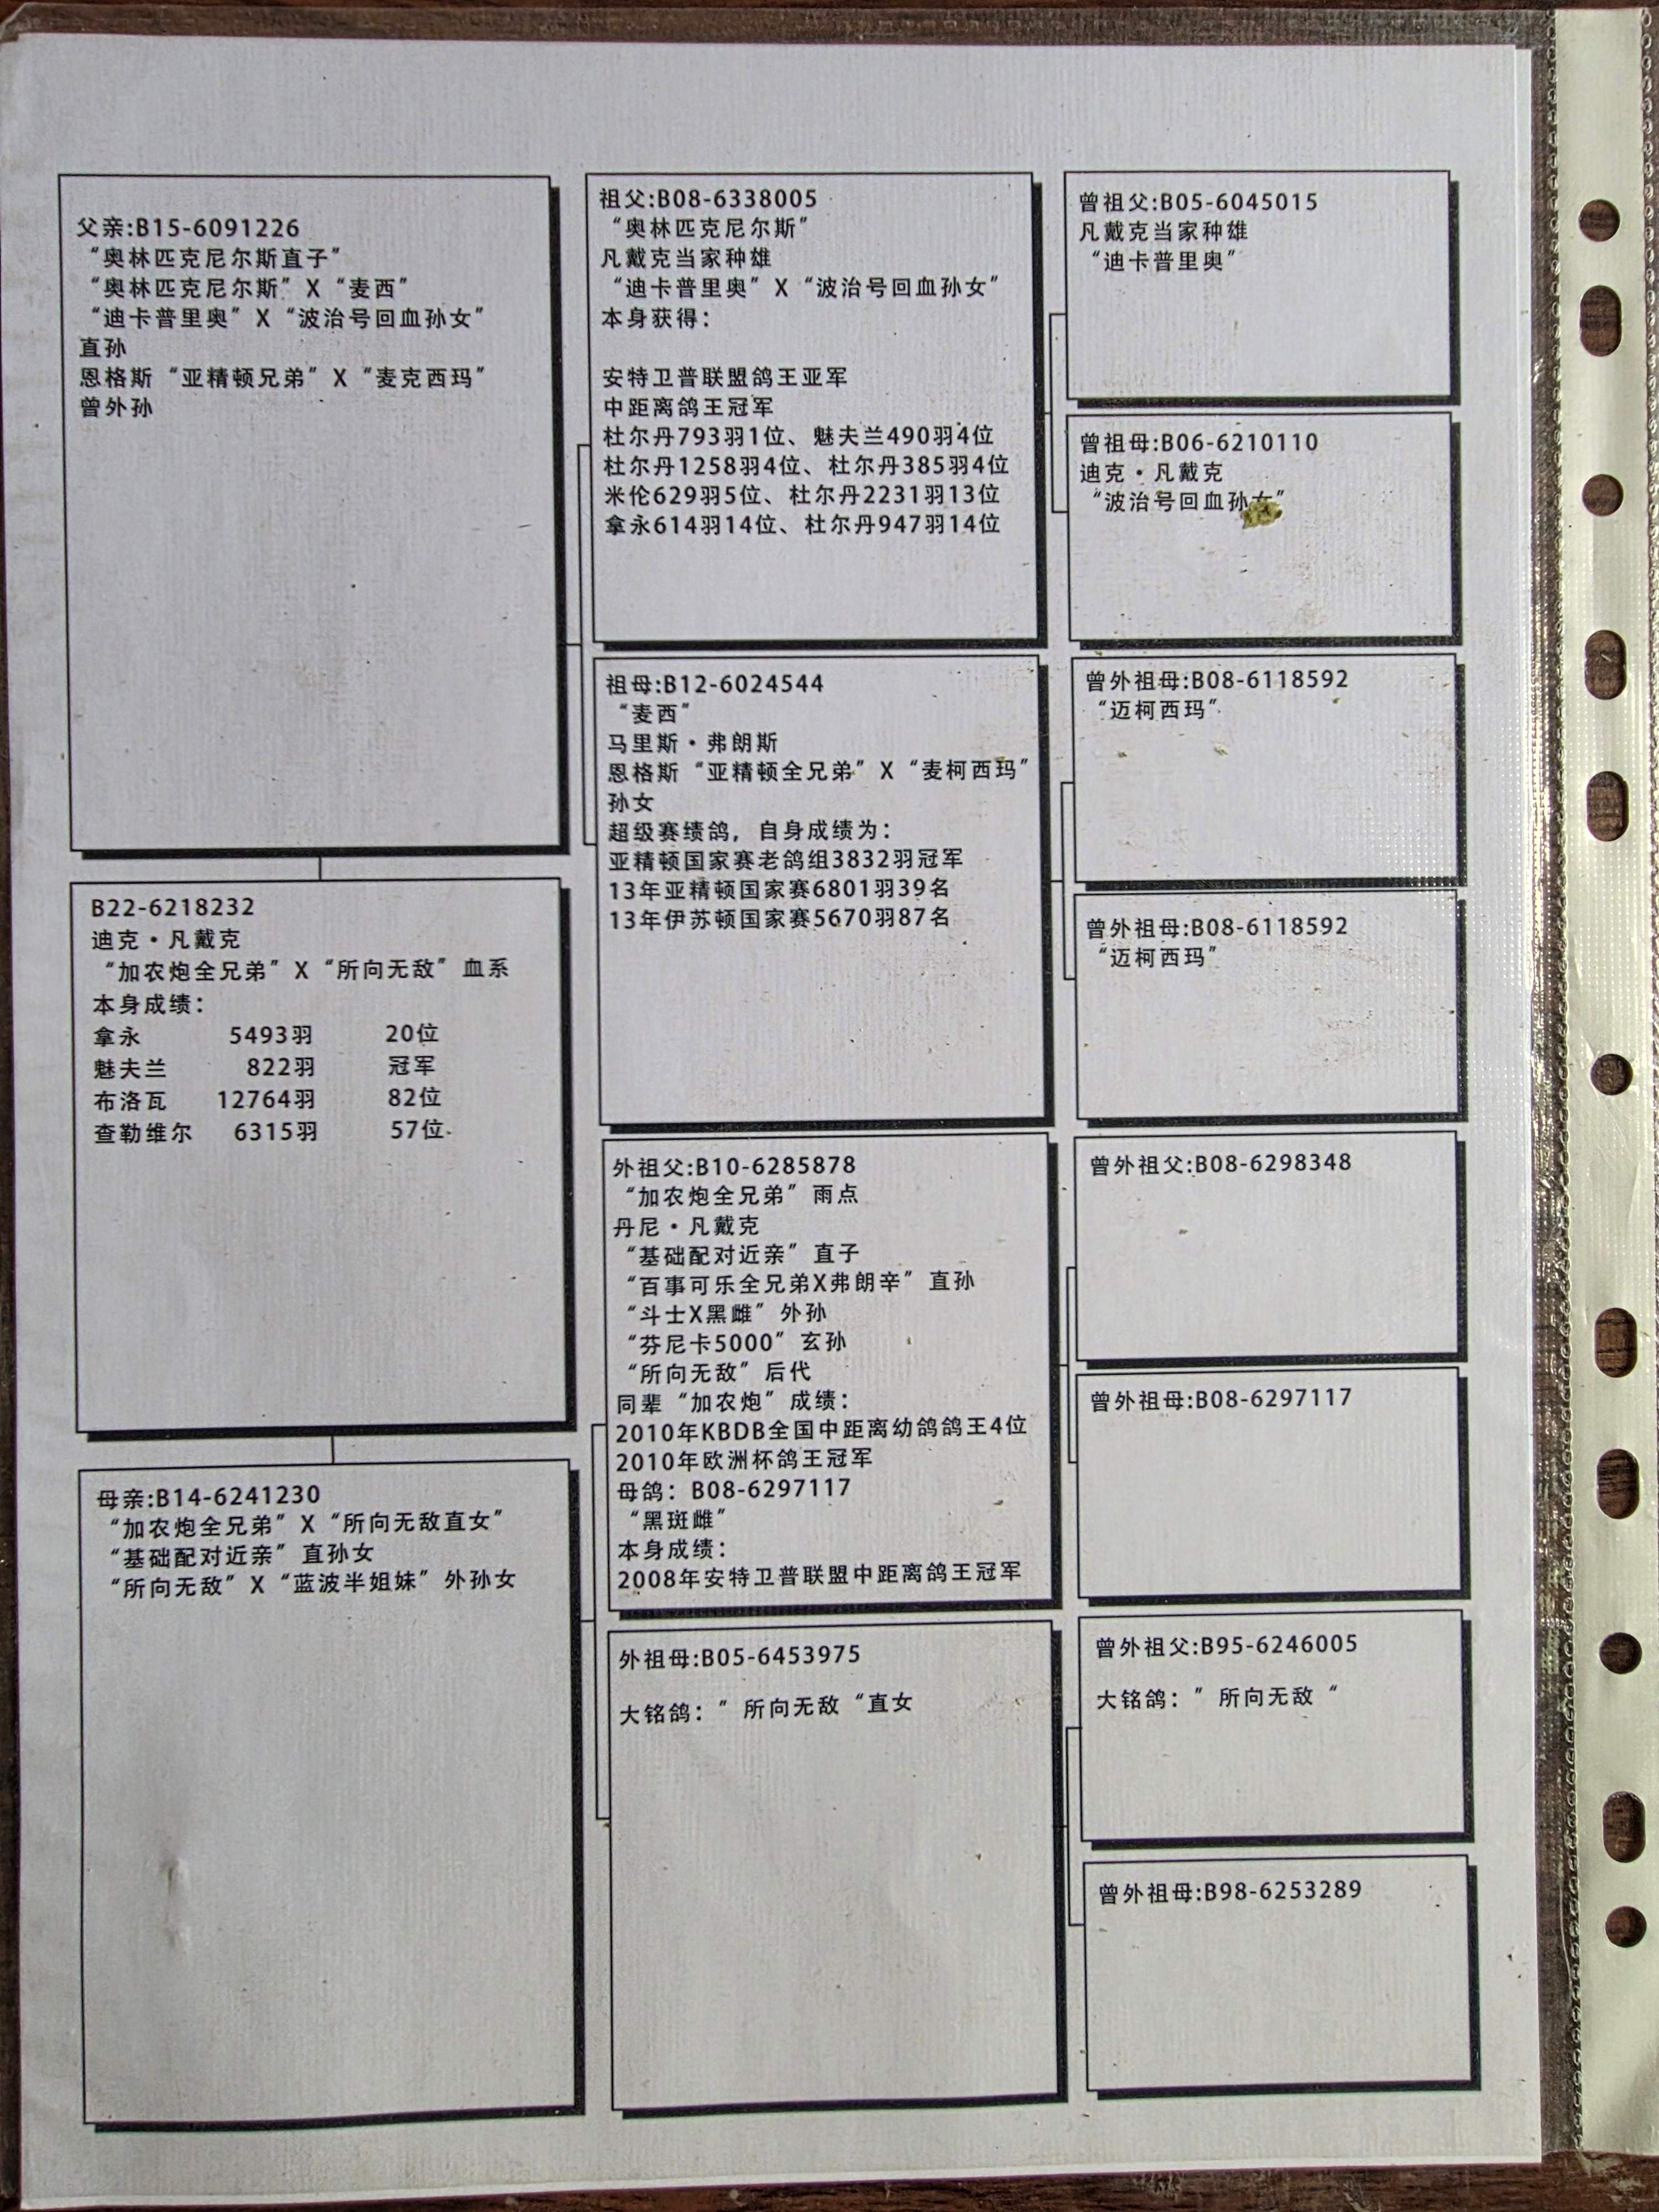 父亲:B15-6091226
“奥林匹克尼尔斯直子”
“奥林匹克尼尔斯”X“麦西”
“迪卡普里奥”X“波治号回血孙女”
直孙
恩格斯“亚精顿兄弟”X“麦克西玛”
曾外孙
B22-6218232
迪克·凡戴克
“加农炮全兄弟”X“所向无敌”血系
本身成绩：
拿永 5493羽 20位
魅夫兰 822羽 冠军
布洛瓦 12764羽 82位
查勒维尔 6315羽 57位
母亲:B14-6241230
“加农炮全兄弟”X“所向无敌直女”
“基础配对近亲”直孙女
“所向无敌”X“蓝波半姐妹”外孙女
祖父:B08-6338005
“奥林匹克尼尔斯”
凡戴克当家种雄
“迪卡普里奥”X“波治号回血孙女”
本身获得：
安特卫普联盟鸽王亚军
中距离鸽王冠军
杜尔丹793羽1位、魅夫兰490羽4位
杜尔丹1258羽4位、杜尔丹385羽4位
米伦629羽5位、杜尔丹2231羽13位
拿永614羽14位、杜尔丹947羽14位
祖母:B12-6024544
“麦西”
马里斯·弗朗斯
恩格斯“亚精顿全兄弟”X“麦柯西玛”
孙女
超级赛绩鸽，自身成绩为：
亚精顿国家赛老鸽组3832羽冠军
13年亚精顿国家赛6801羽39名
13年伊苏顿国家赛5670羽87名
外祖父:B10-6285878
“加农炮全兄弟”雨点
丹尼·凡戴克
“基础配对近亲”直子
“百事可乐全兄弟X弗朗辛”直孙
“斗士X黑雌”外孙
“芬尼卡5000”玄孙
“所向无敌”后代
同辈“加农炮”成绩：
2010年KBDB全国中距离幼鸽鸽王4位
2010年欧洲杯鸽王冠军
母鸽：B08-6297117
“黑斑雌”
本身成绩：
2008年安特卫普联盟中距离鸽王冠军
外祖母:B05-6453975
大铭鸽：”所向无敌“直女
曾祖父:B05-6045015
凡戴克当家种雄
“迪卡普里奥”
曾祖母:B06-6210110
迪克·凡戴克
“波治号回血孙女”
曾外祖母:B08-6118592
“迈柯西玛”
曾外祖母:B08-6118592
“迈柯西玛”
曾外祖父:B08-6298348
曾外祖母:B08-6297117
曾外祖父:B95-6246005
大铭鸽：”所向无敌“
曾外祖母:B98-6253289